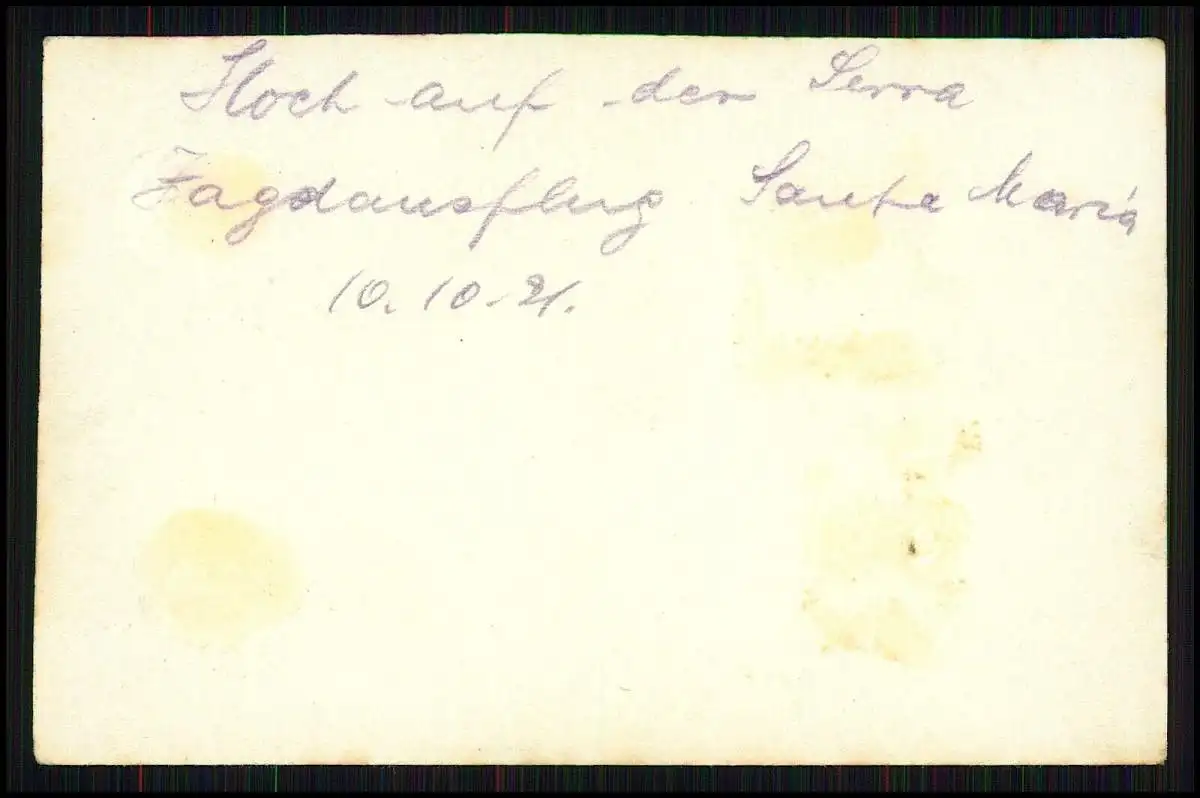 Hoch auf der Serra
Jagdausflug Santa Maria
10. 10. 21.